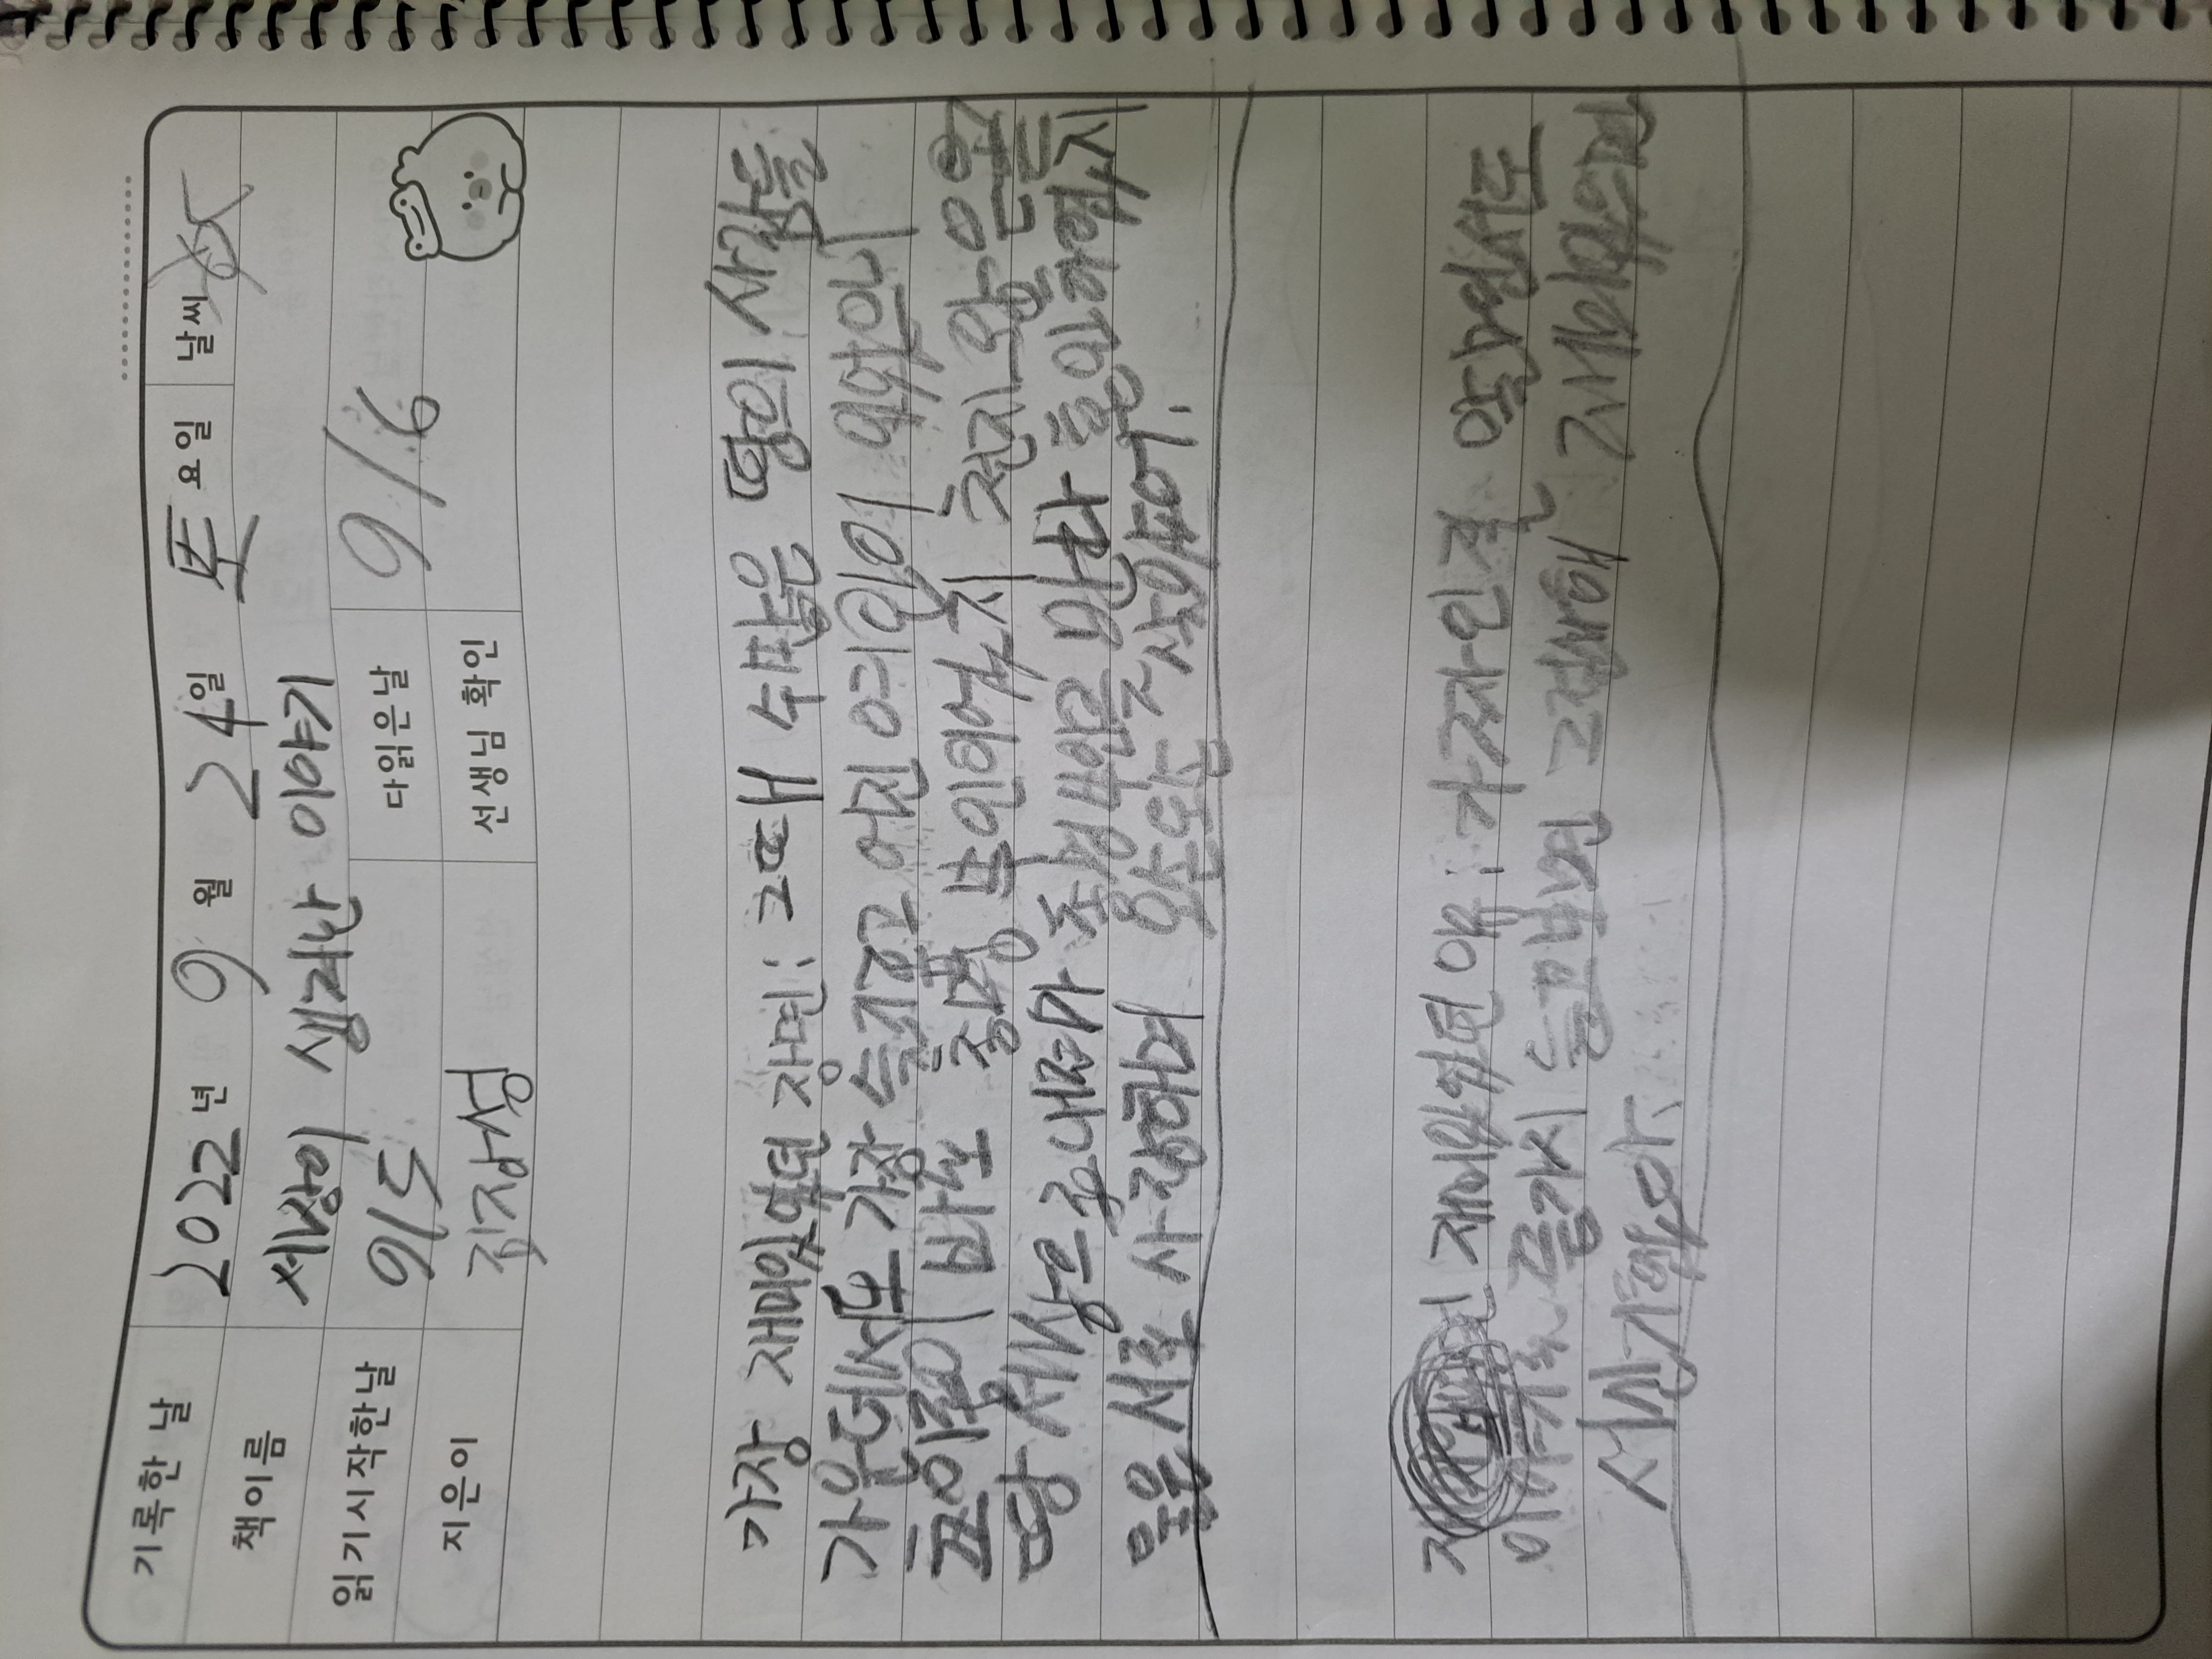 기록한 날 2022년 9월 24일 토요일 날씨
책이름 세상이 생겨난 이야기
읽기시작한날 9/5 다읽은날 9/6
지은이 김장성 선생님 확인
가장 재미있었던 장면: 그때 수많은 땅의 사람들
가운데서도 가장 슬기롭고 어진 여인이 있었으니
그 이름이 바로 총명 부인이었지 천지 왕은
땅 세상으로 내려가 총명부인을 만나 혼인하였지
둘은 서로 사랑하며 오손도손 살았어.
재미있었던 이유: 가짜인 걸 알면서도
이야기를 듣고보면 재미있으면